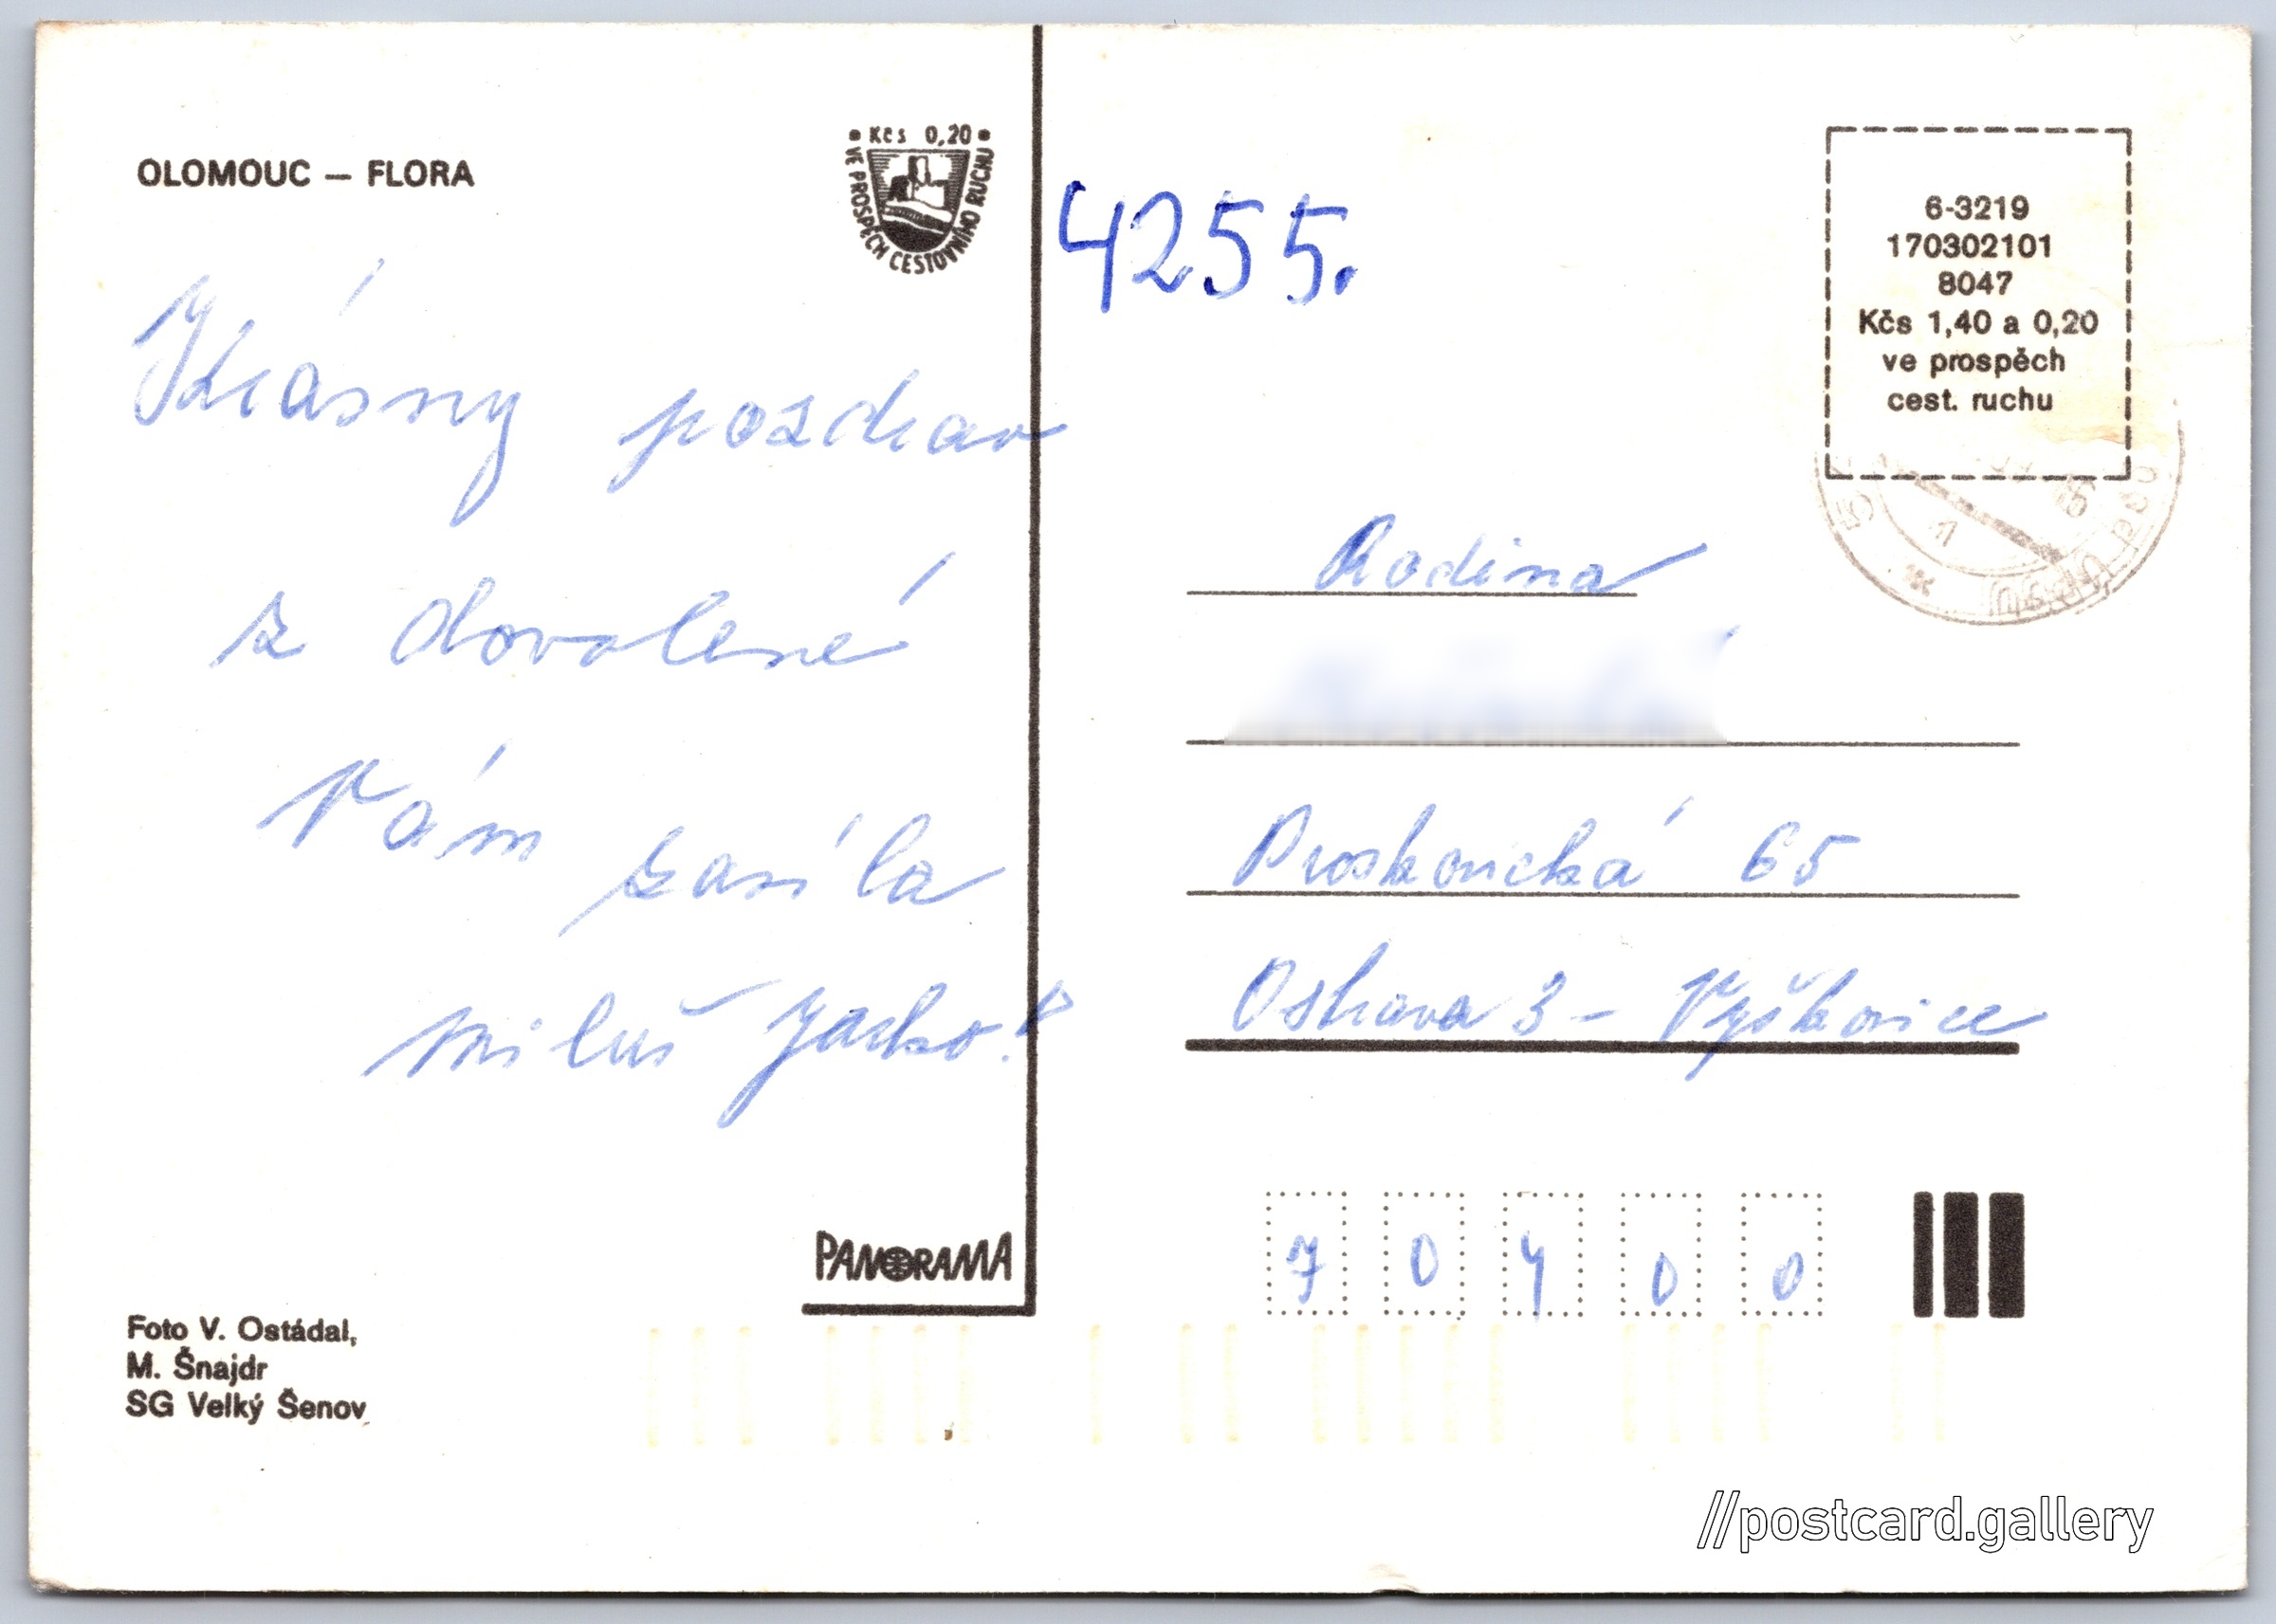 OLOMOUC — FLORA
• Kčs 0,20 •
VE PROSPĚCH CESTOVNÍHO RUCHU
4255.
6-3219
170302101
8047
Kčs 1,40 a 0,20
ve prospěch
cest. ruchu
Krásný pozdrav
z dovolené
Vám zasílá
Miluš Jarko!
Rodina
Proskovická 65
Ostrava 3 - Výškovice
70400
PANORAMA
Foto V. Ostádal,
M. Šnajdr
SG Velký Šenov
//postcard.gallery